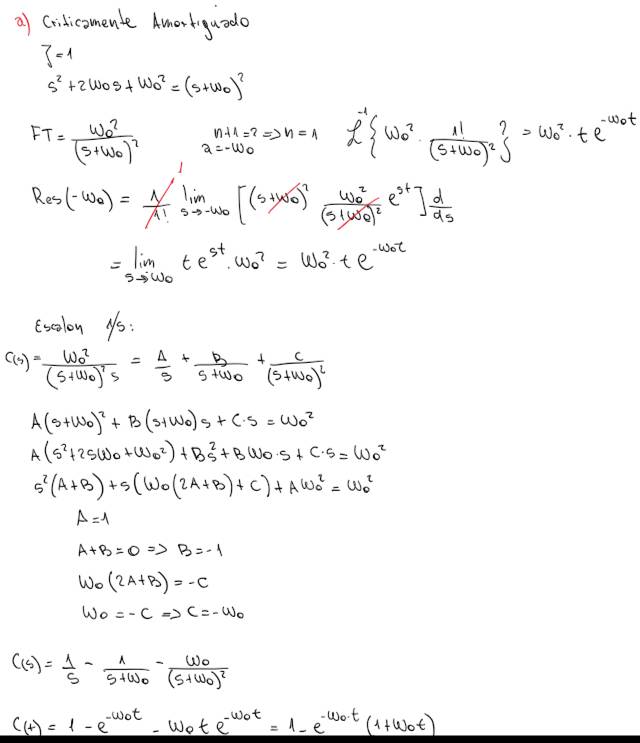 a) Criticamente Amortiguado
ζ=1
s²+2ω₀s+ω₀²=(s+ω₀)²
FT = ω₀²/(s+ω₀)²   n+1=2=>n=1   a=-ω₀   ℒ⁻¹{ω₀² · 1!/(s+ω₀)²} = ω₀² · t e^(-ω₀t)
Res(-ω₀) = 1/1! lim s→-ω₀ [(s+ω₀)² ω₀²/(s+ω₀)² e^(st)] d/ds   1
= lim s→-ω₀ t e^(st) · ω₀² = ω₀² · t e^(-ω₀t)
Escalon 1/s:
C(s) = ω₀²/((s+ω₀)² s) = A/s + B/(s+ω₀) + C/(s+ω₀)²
A(s+ω₀)² + B(s+ω₀)s + C·s = ω₀²
A(s²+2sω₀+ω₀²)+Bs²+Bω₀·s+C·s=ω₀²
s²(A+B)+s(ω₀(2A+B)+C)+Aω₀²=ω₀²
A=1
A+B=0 => B=-1
ω₀(2A+B)=-C
ω₀=-C => C=-ω₀
C(s) = 1/s - 1/(s+ω₀) - ω₀/(s+ω₀)²
C(t) = 1-e^(-ω₀t) - ω₀t e^(-ω₀t) = 1-e^(-ω₀·t)(1+ω₀t)